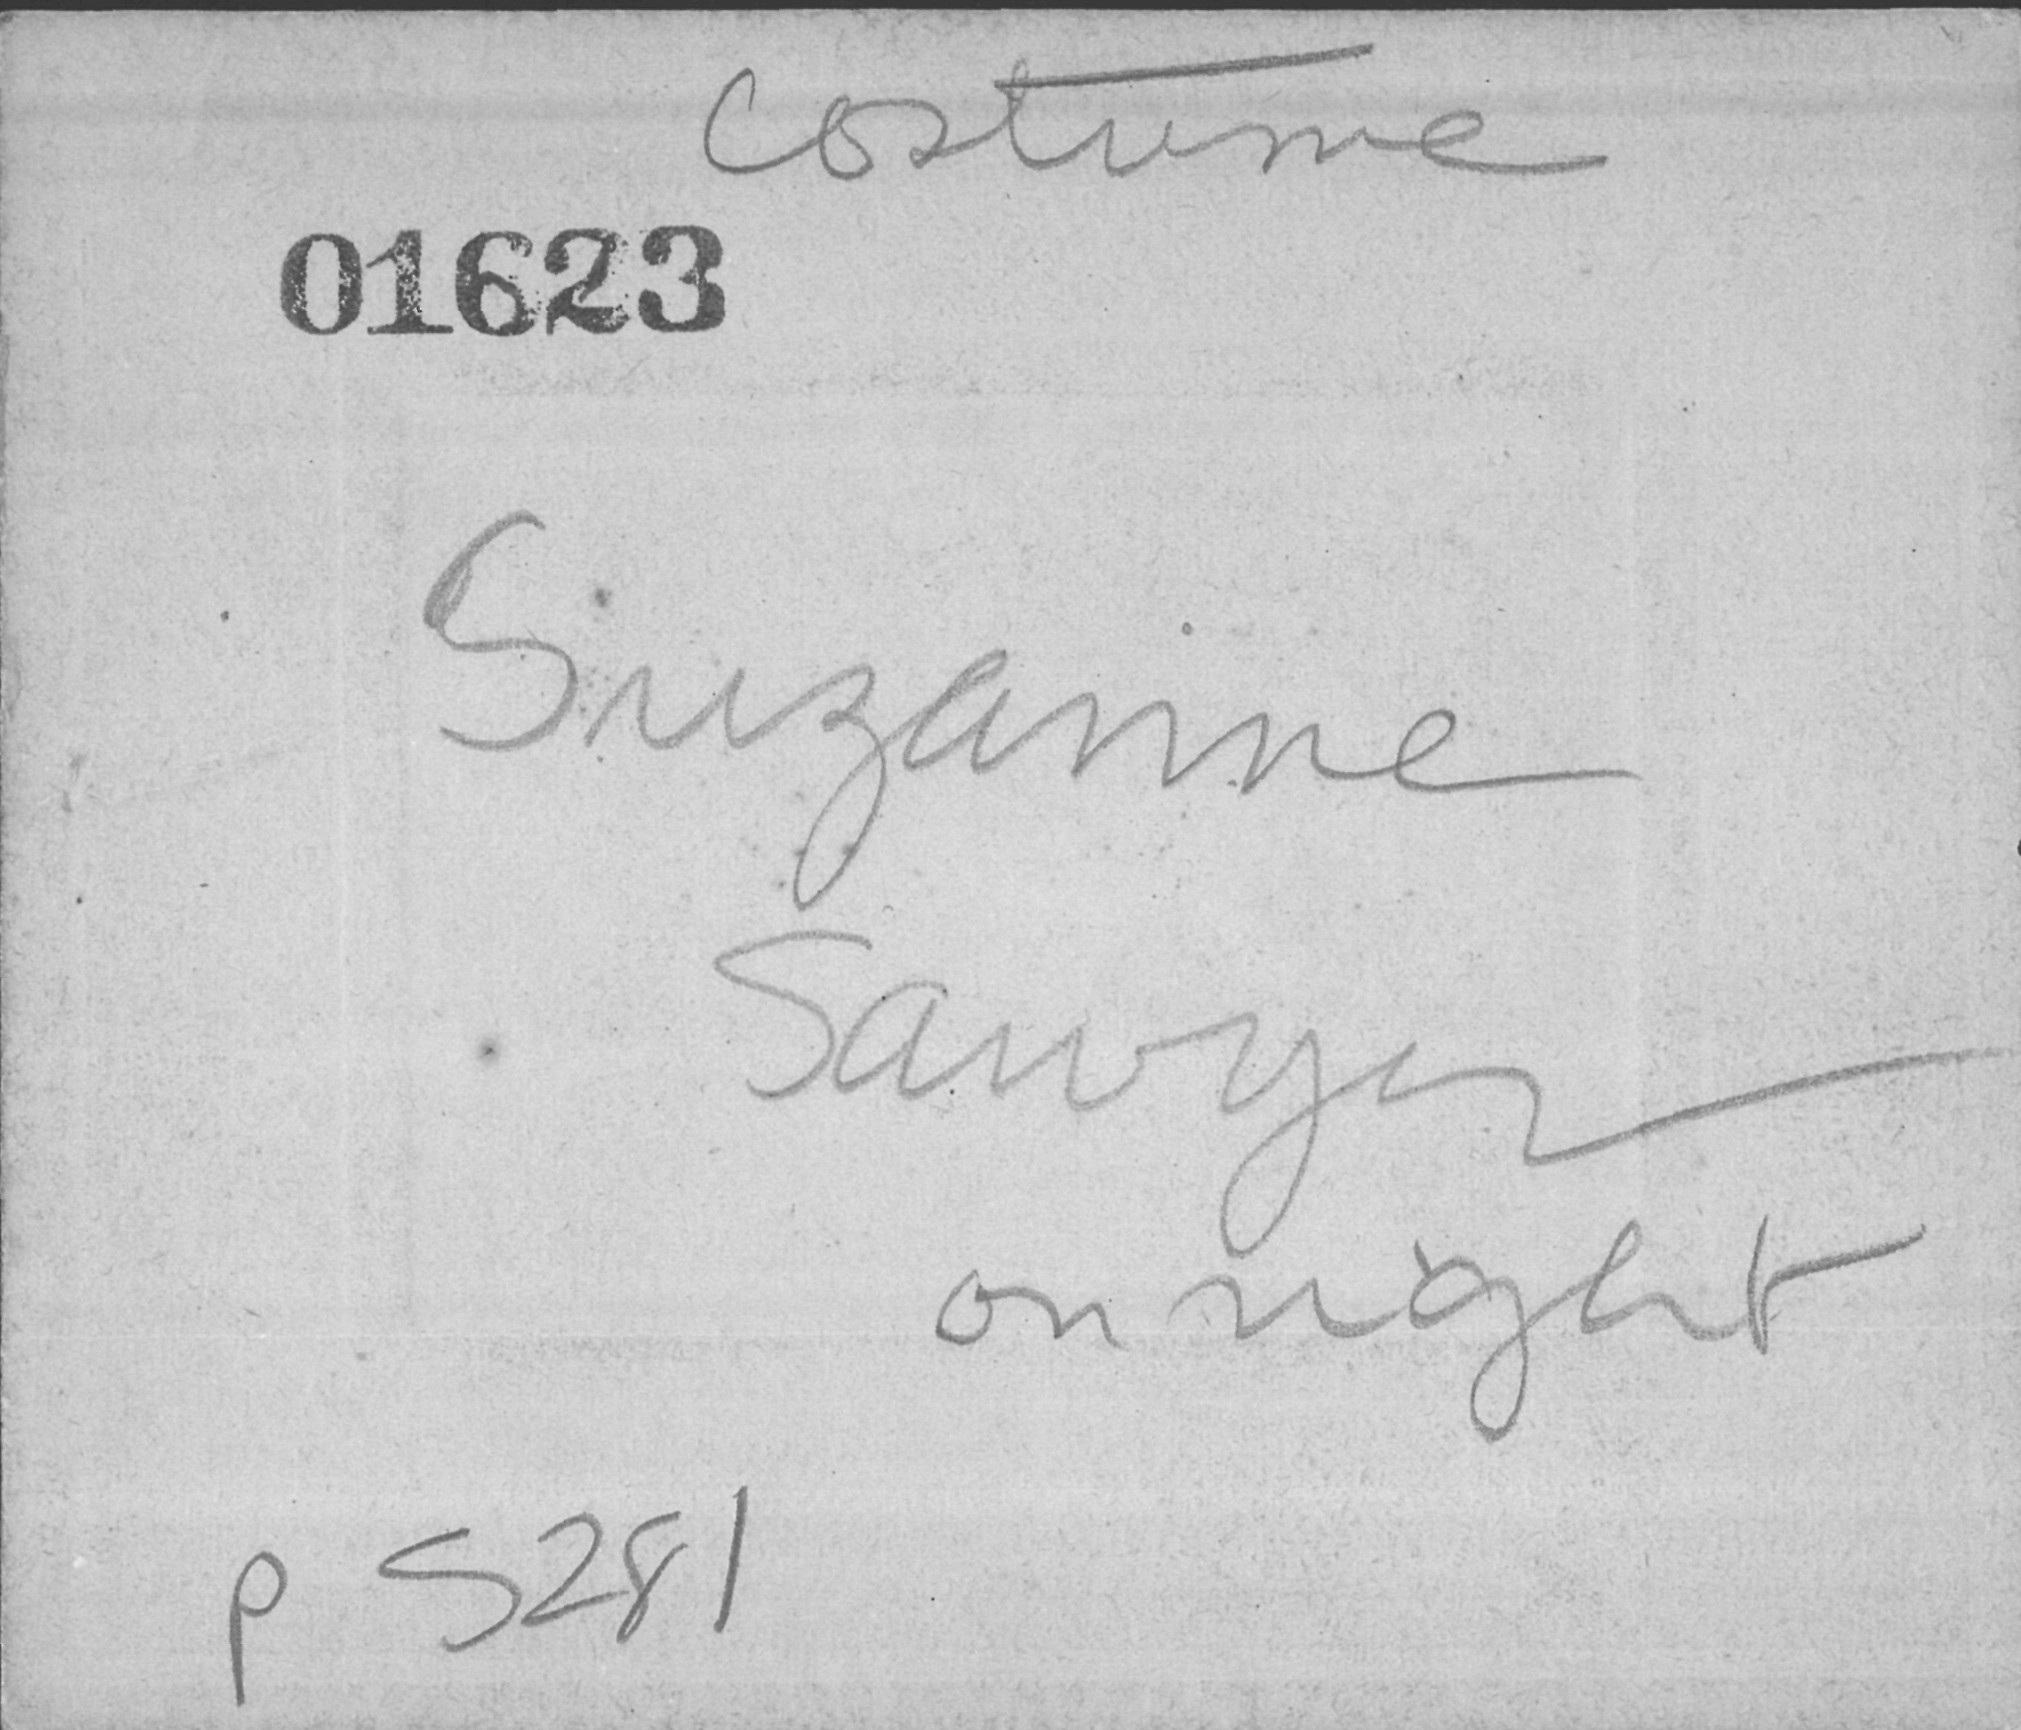 costume
01623
Suzanne
Sawyer
on right
p 5281